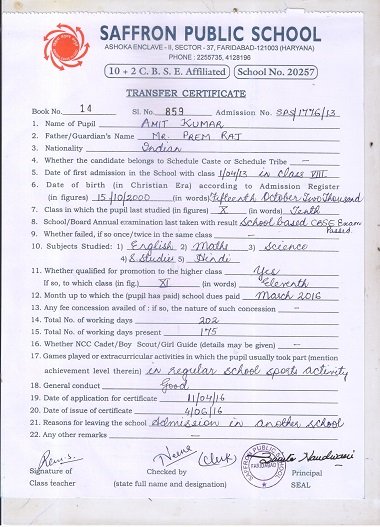 SAFFRON PUBLIC SCHOOL
ASHOKA ENCLAVE - II, SECTOR - 37, FARIDABAD-121003 (HARYANA)
PHONE : 2255735, 4128196
10 + 2 C. B. S. E. Affiliated School No. 20257
TRANSFER CERTIFICATE
Book No. 14 Sl. No. 859 Admission No. SPS/1776/13
1. Name of Pupil AMIT KUMAR
2. Father/Guardian's Name MR. PREM RAJ
3. Nationality Indian
4. Whether the candidate belongs to Schedule Caste or Schedule Tribe –
5. Date of first admission in the School with class 1/04/13 in class VIII
6. Date of birth (in Christian Era) according to Admission Register
(in figures) 15/10/2000 (in words) Fifteenth October Two Thousand
7. Class in which the pupil last studied (in figures) X (in words) Tenth
8. School/Board Annual examination last taken with result School based CBSE Exam Passed
9. Whether failed, if so once/twice in the same class –
10. Subjects Studied: 1) English 2) Maths 3) Science
4) S. Studies 5) Hindi
11. Whether qualified for promotion to the higher class Yes
If so, to which class (in fig.) XI (in words) Eleventh
12. Month up to which the (pupil has paid) school dues paid March 2016
13. Any fee concession availed of : if so, the nature of such concession –
14. Total No. of working days 202
15. Total No. of working days present 175
16. Whether NCC Cadet/Boy Scout/Girl Guide (details may be given) –
17. Games played or extracurricular activities in which the pupil usually took part (mention
achievement level therein) in regular school sports activity
18. General conduct Good
19. Date of application for certificate 11/04/16
20. Date of issue of certificate 4/06/16
21. Reasons for leaving the school Admission in another school
22. Any other remarks –
(Clerk)
SAFFRON PUBLIC SCHOOL FARIDABAD
Signature of Checked by Principal
Class teacher (state full name and designation) SEAL